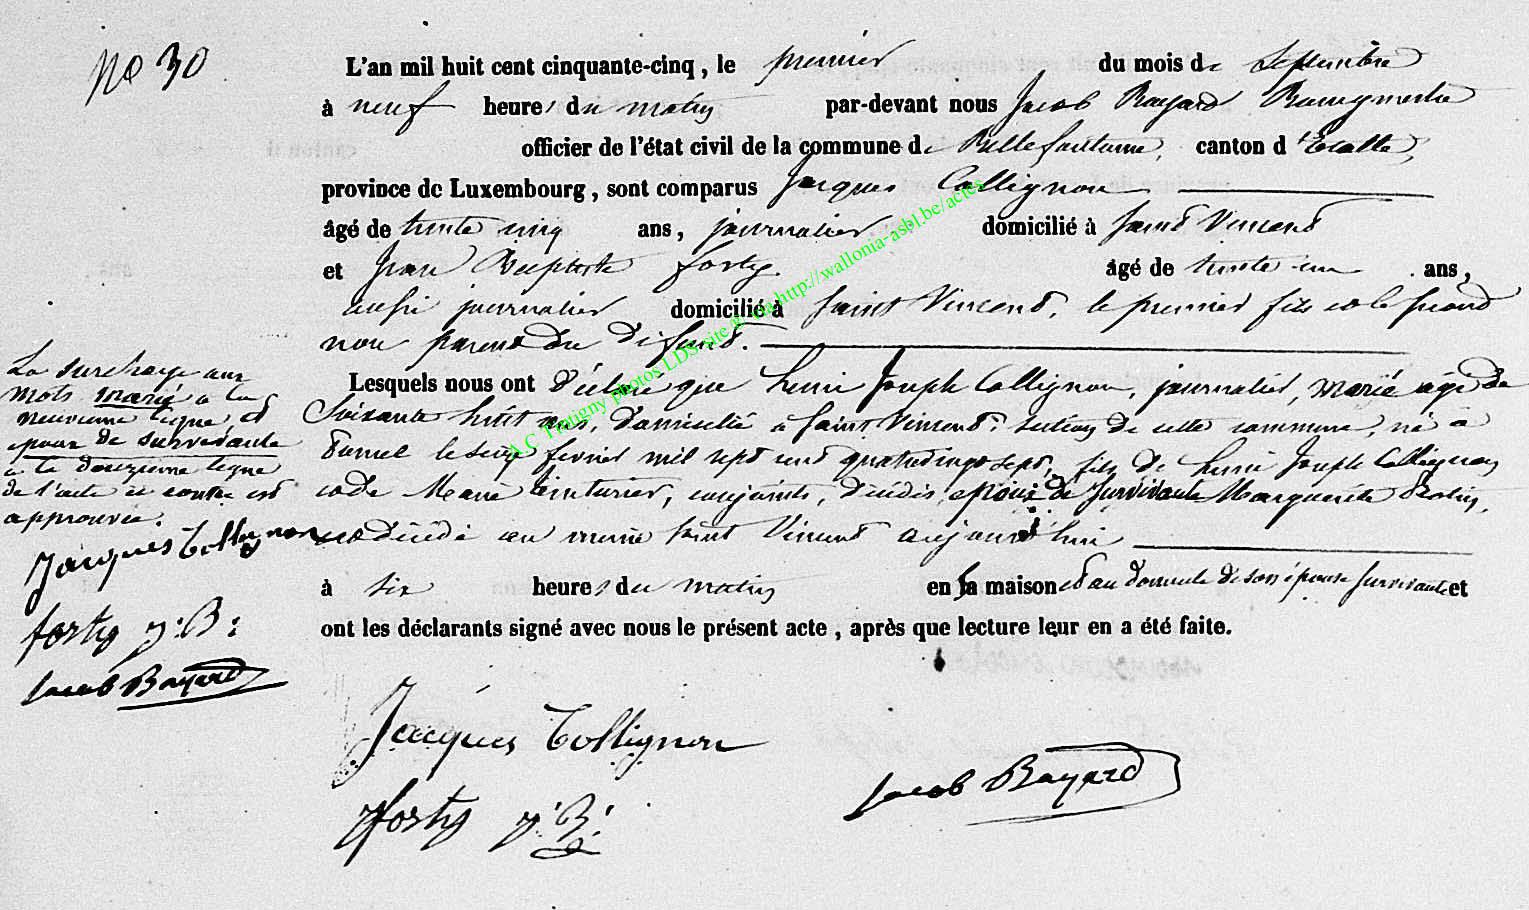 No 30
L'an mil huit cent cinquante-cinq, le premier du mois de Septembre
à neuf heures du matin par-devant nous Jacob Bayard Bourgmestre
officier de l'état civil de la commune de Bellefontaine, canton d'Etalle,
province de Luxembourg, sont comparus Jacques Collignon
âgé de trente cinq ans, journalier, domicilié à Saint Vincent
et Jean Baptiste forty. âgé de trente un ans,
aussi journalier domicilié à Saint Vincent, le premier fils et le second
non parent du défunt.
Lesquels nous ont déclaré que henri Joseph Collignon, journalier, marié âgé de
soixante huit ans, domicilié à Saint Vincent, section de cette commune, né à
le seize février mil sept cent quatre vingt sept, fils de henri Joseph Collignon
et de Marie teinturier, conjoints, décédés, époux de survivante Marguerite
est décédé au même Saint Vincent aujourd'hui
à six heures du matin en sa maison et au domicile de son épouse survivante et
ont les déclarants signé avec nous le présent acte, après que lecture leur en a été faite.
La surcharge aux
mots marié à la
neuvième ligne, et
époux de survivante
à la douzième ligne
de l'acte ci contre est
approuvée.
Jacques Collignon
forty j: B:
Jacob Bayard
Jacques Collignon
forty j: B:
Jacob Bayard
A.C Tintigny photos LDS site g via http://wallonia-asbl.be/actes